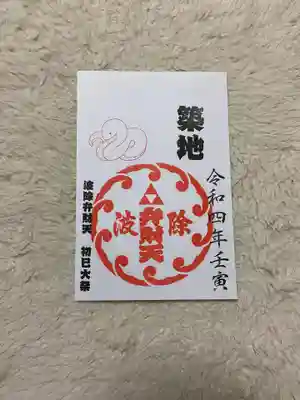 築地
令和四年壬寅
波除
弁財天
波除弁財天 初巳大祭